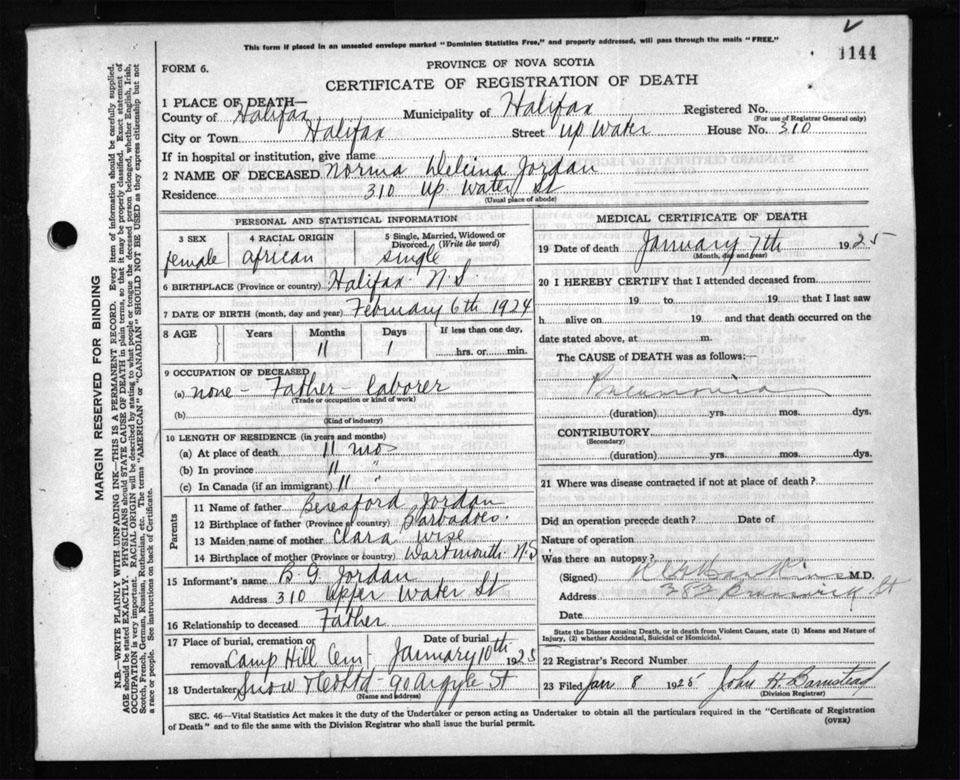 This form if placed in an unsealed envelope marked "Dominion Statistics Free," and properly addressed, will pass through the mails "FREE."
1144
FORM 6.
PROVINCE OF NOVA SCOTIA
CERTIFICATE OF REGISTRATION OF DEATH
1 PLACE OF DEATH—
County of Halifax Municipality of Halifax Registered No.
(For use of Registrar General only)
City or Town Halifax Street Up Water House No. 310
If in hospital or institution, give name
2 NAME OF DECEASED Norma Jordan
Residence 310 Up Water St
(Usual place of abode)
PERSONAL AND STATISTICAL INFORMATION
3 SEX 4 RACIAL ORIGIN 5 Single, Married, Widowed or Divorced. (Write the word)
female african single
6 BIRTHPLACE (Province or country) Halifax N.S
7 DATE OF BIRTH (month, day and year) February 6th 1924
8 AGE Years Months Days If less than one day,
11 1 hrs. or min.
9 OCCUPATION OF DECEASED
(a) none - Father - laborer
(Trade or occupation or kind of work)
(b)
(Kind of industry)
10 LENGTH OF RESIDENCE (in years and months)
(a) At place of death 11 mo
(b) In province 11 "
(c) In Canada (if an immigrant) 11 "
Parents
11 Name of father Beresford Jordan
12 Birthplace of father (Province or country) Barbadoes.
13 Maiden name of mother Clara Wise
14 Birthplace of mother (Province or country) Dartmouth N.S
15 Informant's name B. G. Jordan
Address 310 Upper Water St
16 Relationship to deceased Father
17 Place of burial, cremation or removal Camp Hill Cem Date of burial January 10th 1925
18 Undertaker Snow & Co Ltd - 90 Argyle St
(Name and address)
MEDICAL CERTIFICATE OF DEATH
19 Date of death January 7th 1925
(Month, day and year)
20 I HEREBY CERTIFY that I attended deceased from
19 to 19 that I last saw
h alive on 19 and that death occurred on the
date stated above, at m.
The CAUSE of DEATH was as follows:—
Pneumonia
(duration) yrs. mos. dys.
CONTRIBUTORY
(Secondary)
(duration) yrs. mos. dys.
21 Where was disease contracted if not at place of death?
Did an operation precede death? Date of
Nature of operation
Was there an autopsy?
(Signed) M.D.
Address 282 Brunswick St
Date
State the Disease causing Death, or in death from Violent Causes, state (1) Means and Nature of
Injury, (2) whether Accidental, Suicidal or Homicidal.
22 Registrar's Record Number
23 Filed Jan 8 1925 John H. Barnstead
(Division Registrar)
SEC. 46—Vital Statistics Act makes it the duty of the Undertaker or person acting as Undertaker to obtain all the particulars required in the "Certificate of Registration
of Death" and to file the same with the Division Registrar who shall issue the burial permit.
(OVER)
MARGIN RESERVED FOR BINDING
N.B.—WRITE PLAINLY WITH UNFADING INK—THIS IS A PERMANENT RECORD. Every item of information should be carefully supplied.
AGE should be stated EXACTLY. PHYSICIANS should STATE CAUSE OF DEATH in plain terms, so that it may be properly classified. Exact statement of
OCCUPATION is very important. RACIAL ORIGIN will be described by stating to what people or tongue the deceased person belonged, whether English, Irish,
Scotch, French, German, Russian, Ruthenian, etc. The terms "AMERICAN" or "CANADIAN" SHOULD NOT BE USED as they express citizenship but not
a race or people. See instructions on back of Certificate.